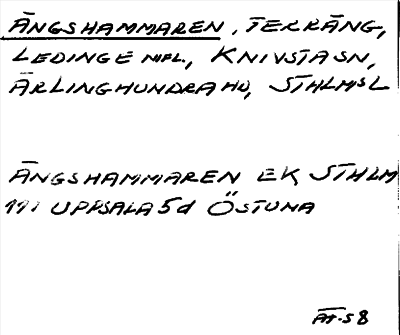 ÄNGSHAMMAREN, TERRÄNG,
LEDINGE NIPL, KNIVSTA SN,
ÄRLINGHUNDRA HD, STHLMSL
ÄNGSHAMMAREN EK, STHLM
UPPSALA 5d ÖSTUNA
ÄT-58